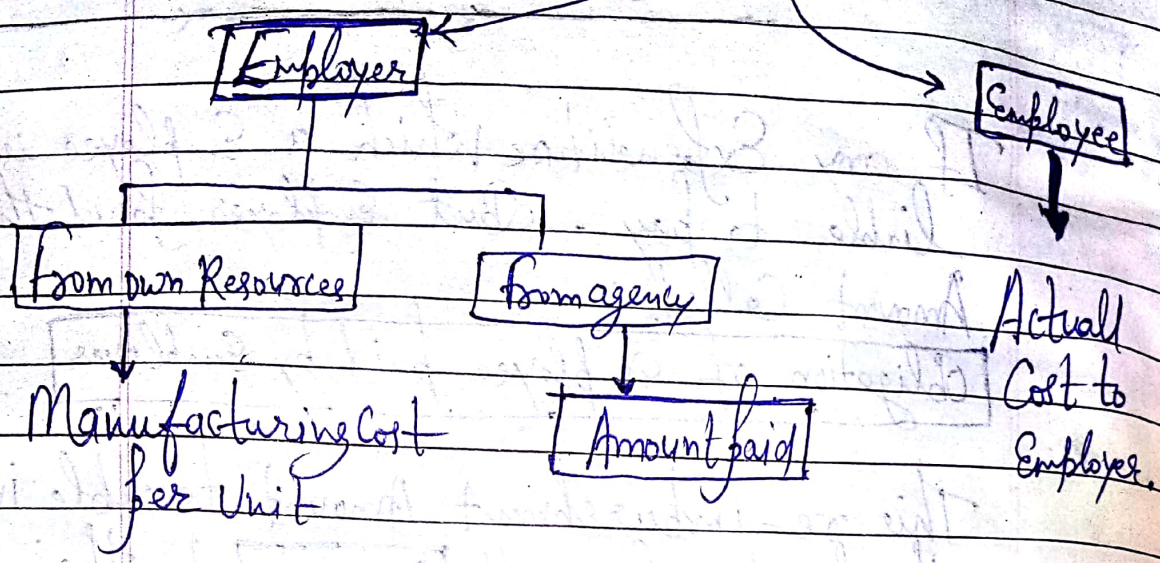 Employer
Employee
from own Resources
from agency
Manufacturing Cost
per Unit
Amount paid
Actuall
Cost to
Employer.